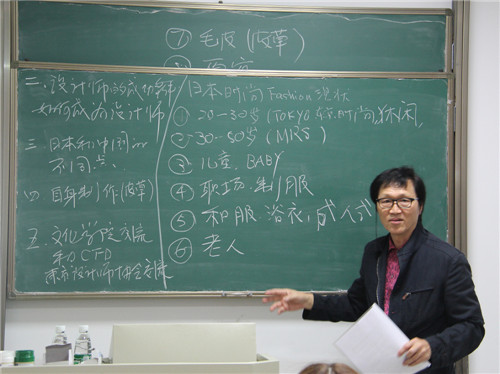 ⑦ 毛皮 (皮革)
二. 设计师的成功条件
如何成为设计师
三 日本和中国の
不同点.
四 自身制作(皮革)
五. 文化学院交流
和 CFD
东京设计师协会交流
日本时尚 Fashion 现状
① 20-30岁 (TOKYO 东京.时尚)休闲
② 30-50岁 (MRS)
③ 儿童. BABY
④ 职场. 制服
⑤ 和服. 浴衣,
⑥ 老人